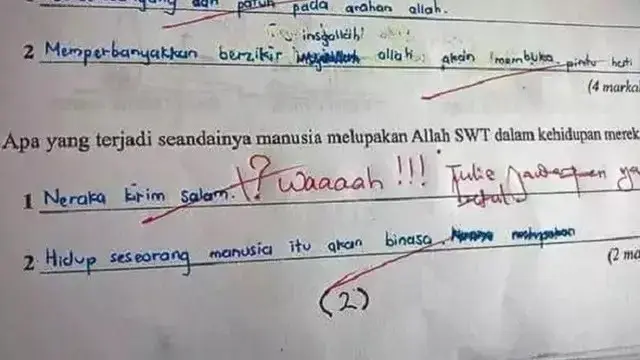 dan patuh pada arahan allah.
insyallah!
2 Memperbanyakkan berzikir allah, akan membuka pintu hati
(4 marka
Apa yang terjadi seandainya manusia melupakan Allah SWT dalam kehidupan merek
1 Neraka kirim salam. !? Waaaah !!! Tulis
betul
2 Hidup seseorang manusia itu akan binasa.
(2 ma
(2)